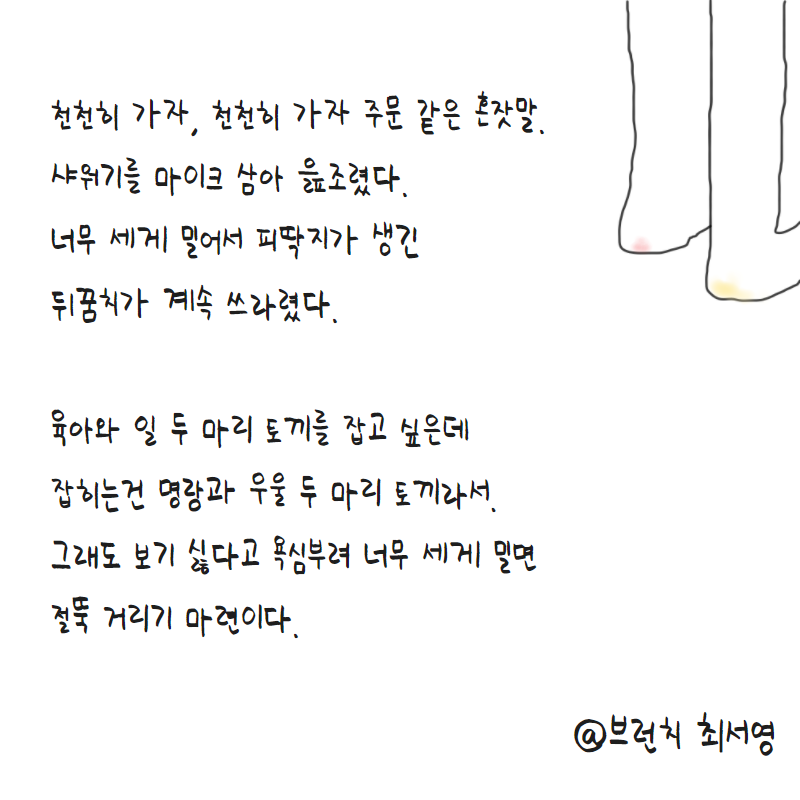 천천히 가자, 천천히 가자 주문 같은 혼잣말.
샤워기를 마이크 삼아 읊조렸다.
너무 세게 밀어서 피딱지가 생긴
뒤꿈치가 계속 쓰라렸다.
육아와 일 두 마리 토끼를 잡고 싶은데
잡히는건 명랑과 우울 두 마리 토끼라서.
그래도 보기 싫다고 욕심부려 너무 세게 밀면
절뚝 거리기 마련이다.
@브런치 최서영